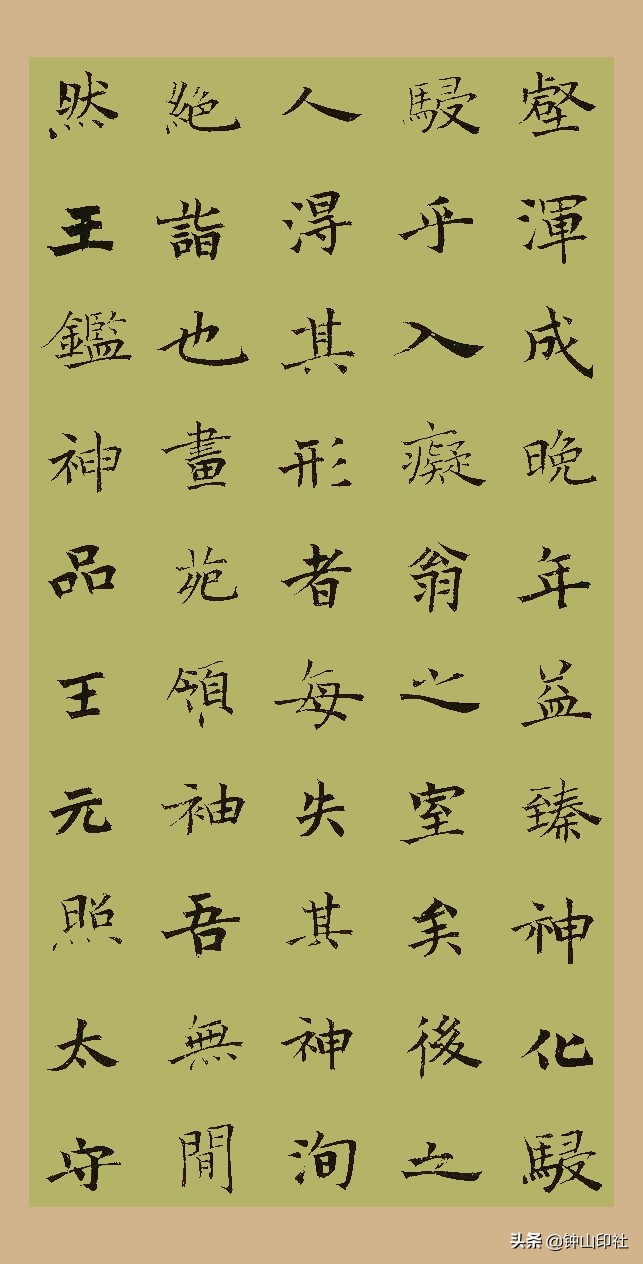 壑渾成晚年益臻神化駸
駸乎入癡翁之室矣後之
人得其形者每失其神洵
絕詣也畫苑領袖吾無閒
然王鑑神品王元照太守
头条 @钟山印社